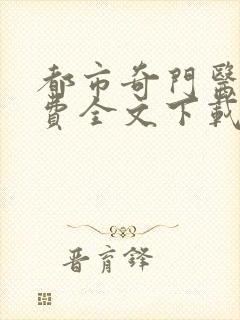 都市奇門醫
費全文下載
晋育鋒